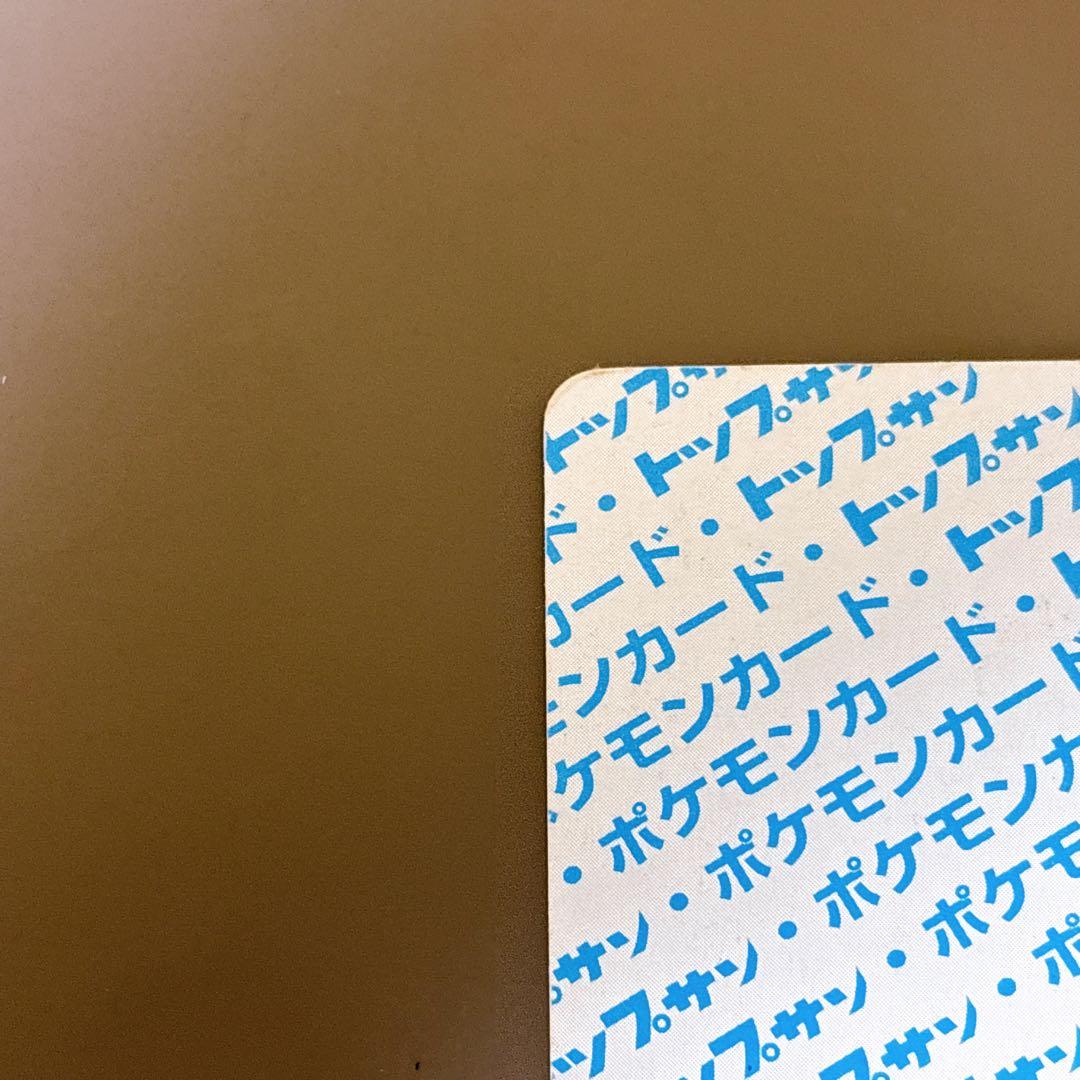 トップ
ド・トップサ
カード・トップサン
ンカード・トップサン
ケモンカード・トップ
・ポケモンカード・ト
サン・ポケモンカード
ップサン・ポケモンカ
ップサン・ポケモ
プサン・ポ
サン